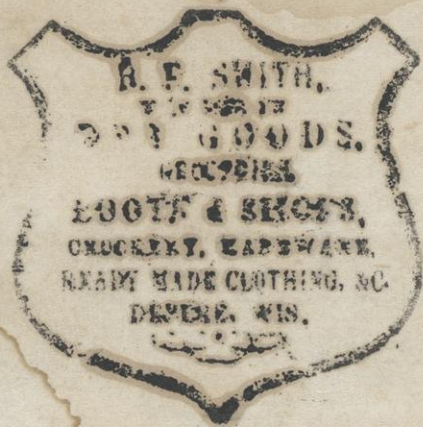 SMITH,
DRY GOODS,
GROCERIES,
BOOTS & SHOES,
CROCKERY, HARDWARE,
READY MADE CLOTHING, &C.
DEPERE, WIS.